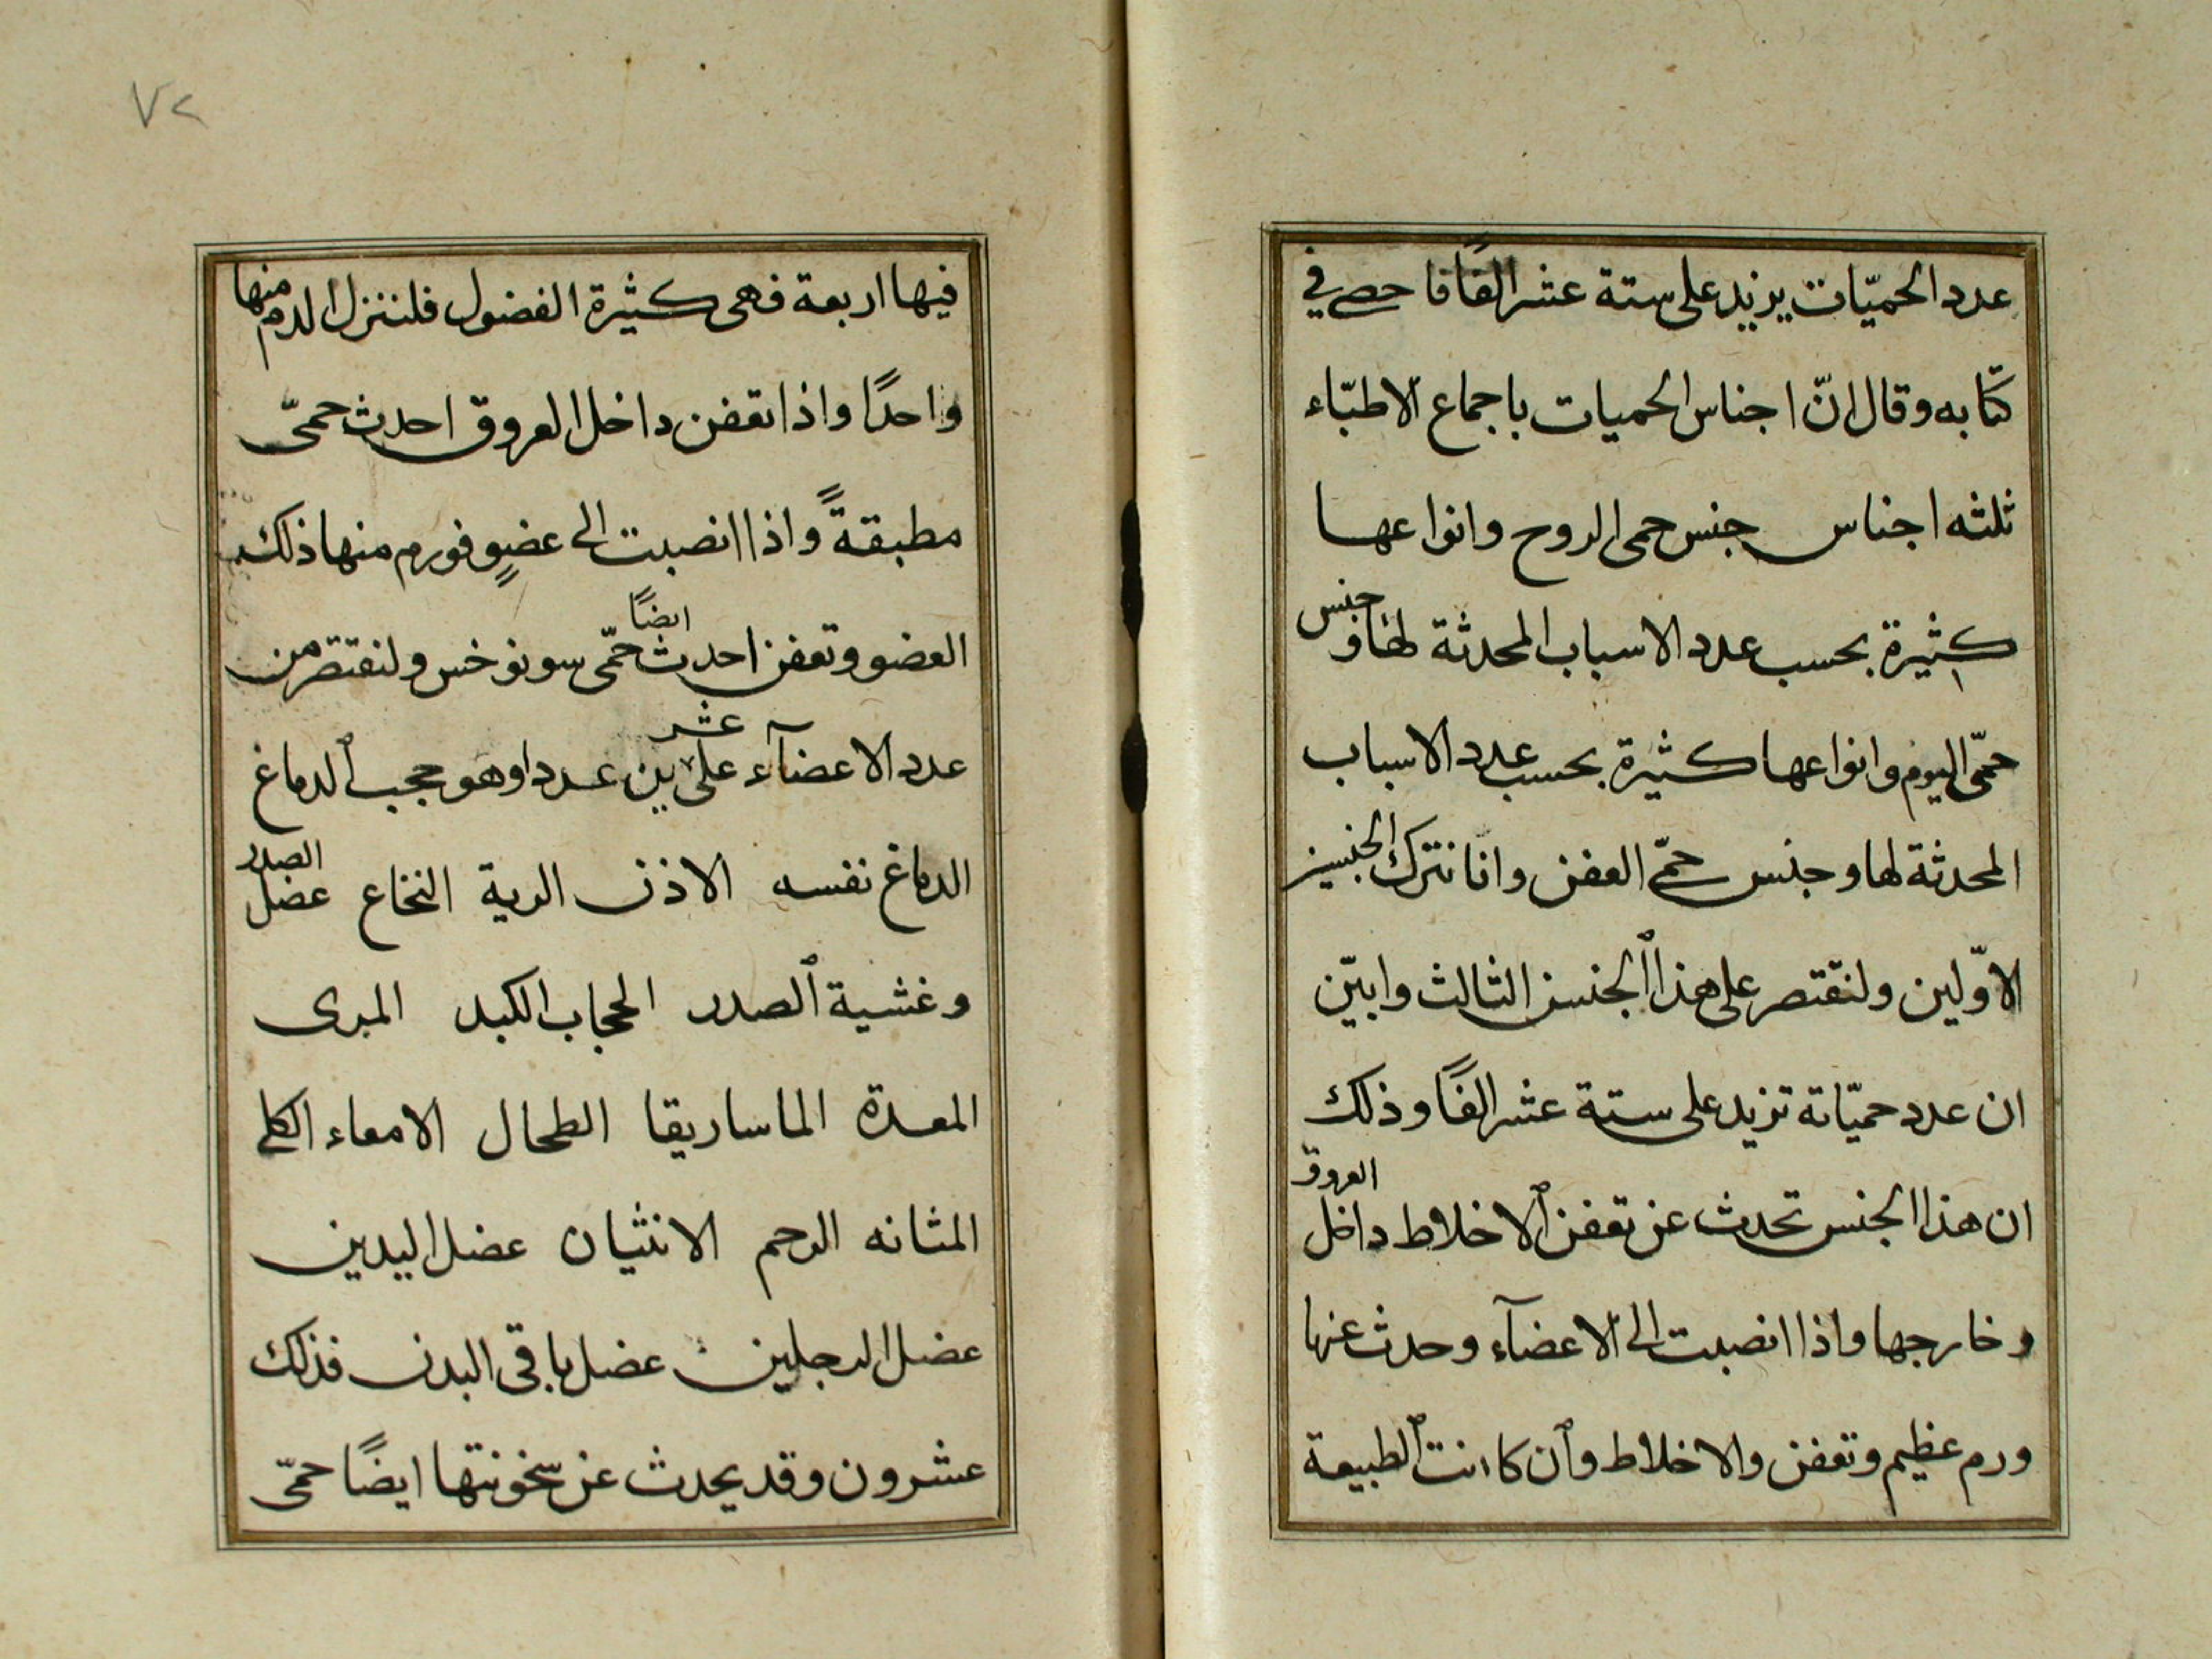 عدد الحميّات يزيد على ستة عشر الفًا فاحصى في
كتابه وقال انّ اجناس الحميات باجماع الاطبّاء
ثلثه اجناس جنس حمى الروح وانواعها
كثيرة بحسب عدد الاسباب المحدثة لها وجنس
حمّى اليوم وانواعها كثيرة بحسب عدد الاسباب
المحدثة لها وجنس حمّى العفن وانا نترك الجنسين
الاوّلين ولنقتصر على هذا الجنس الثالث وابيّن
ان عدد حميّاته تزيد على ستة عشر الفًا وذلك
ان هذا الجنس تحدث عن تعفن الاخلاط داخل العروق
وخارجها واذا انصبت الى الاعضآء وحدث عنها
ورم عظيم وتعفن والاخلاط وان كانت الطبيعة
٧٢
فيها اربعة فهى كثيرة الفضول فلننزل الدم منها
واحدًا واذا تعفن داخل العروق احدث حمىّ
مطبقةً واذا انصبت الى عضوٍ فورم منها ذلك
العضو وتعفن احدث ايضًا حمّى سونوخس ولنقتصر من
عدد الاعضآء على عشرين عددا وهو حجب الدماغ
الدماغ نفسه الاذن الرية النخاع عضل الصدر
وغشية الصدر الحجاب الكبد المرى
المعدة الماساريقا الطحال الامعاء الكلى
المثانه الرحم الانثيان عضل اليدين
عضل الرجلين عضل باقى البدن فذلك
عشرون وقد يحدث عن سخونتها ايضًا حمّى